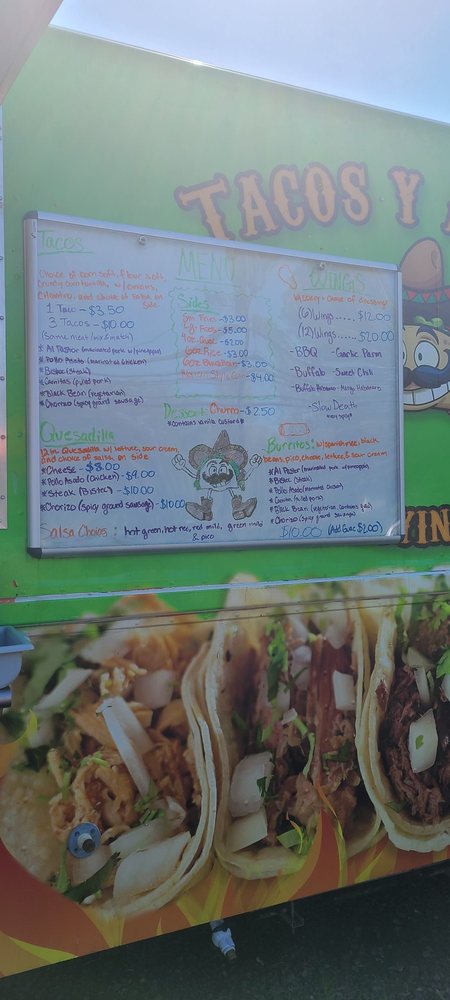 TACOS Y
MENU
Tacos
Choice of corn soft, flour soft,
crunchy corn tortilla, w/ onions,
Cilantro, and choice of salsa on
side
1 Taco - $3.50
3 Tacos - $10.00
(same meat / no mix & match)
* Al Pastor (marinated pork w/ pineapples)
* Pollo Asado (marinated chicken)
* Bistec (steak)
* Carnitas (pulled pork)
* Black Bean (vegetarian)
* Chorizo (spicy ground sausage)
Quesadilla
12 in Quesadilla w/ lettuce, sour cream,
and choice of salsa on side
* Cheese - $8.00
* Pollo Asado (chicken) - $9.00
* Steak (Bistec) - $10.00
* Chorizo (spicy ground sausage) - $10.00
Salsa Choices: hot green, hot red, red mild, green mild
& pico
Sides
Sm Fries - $3.00
Lg Fries - $5.00
Guac - $2.00
6oz Rice - $3.00
6oz - $3.00
Style Corn - $4.00
Dessert: Churro - $2.50
*contains vanilla custard*
WINGS
choice of dressing
(6) Wings...... $12.00
(12) Wings...... $20.00
- BBQ Garlic Parm
- Buffalo - Sweet Chili
- Mango Habanero
- Slow Death
Burritos: w/ spanish rice, black
beans, pico, cheese, lettuce, & sour cream
* Al Pastor (marinated pork w/ pineapple)
* Bistec (steak)
* Pollo Asado (marinated chicken)
* Carnitas (pulled pork)
* Black Bean (vegetarian)
* Chorizo (spicy ground sausage)
$10.00 (Add Guac $2.00)
YIN